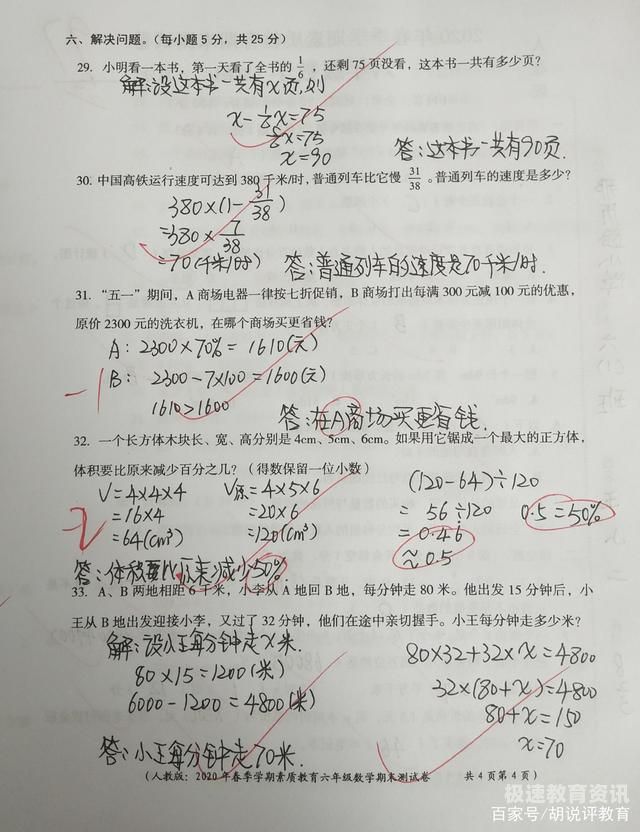 六、解决问题。(每小题5分，共25分)
29. 小明看一本书，第一天看了全书的 1/6 ，还剩75页没看，这本书一共有多少页？
解:设这本书一共有x页,则
x-1/6x=75
5/6x=75
x=90
答:这本书一共有90页.
30. 中国高铁运行速度可达到380千米/时，普通列车比它慢 31/38 。普通列车的速度是多少？
380×(1-31/38)
=380×7/38
=70(千米/时)
答:普通列车的速度是70千米/时.
31. “五一”期间，A商场电器一律按七折促销，B商场打出每满300元减100元的优惠，
原价2300元的洗衣机，在哪个商场买更省钱？
A: 2300×70%=1610(元)
-1
B: 2300-7×100=1600(元)
1610>1600
答:在A商场买更省钱.
32. 一个长方体木块长、宽、高分别是4cm、5cm、6cm。如果用它锯成一个最大的正方体，
体积要比原来减少百分之几？(得数保留一位小数)
V=4×4×4
=16×4
=64(cm³)
V原=4×5×6
=20×6
=120(cm³)
(120-64)÷120
=56÷120
=0.46
≈0.5
0.5=50%
-2
答:体积要比原来减少50%.
33. A、B两地相距6千米，小李从A地回B地，每分钟走80米。他出发15分钟后，小
王从B地出发迎接小李，又过了32分钟，他们在途中亲切握手。小王每分钟走多少米？
解:设小王每分钟走x米.
80×15=1200(米)
6000-1200=4800(米)
80×32+32×x=4800
32×(80+x)=4800
80+x=150
x=70
答:小王每分钟走70米.
(人教版：2020年春季学期素质教育六年级数学期末测试卷 共4页第4页)
极速教育资讯
百家号/胡说评教育